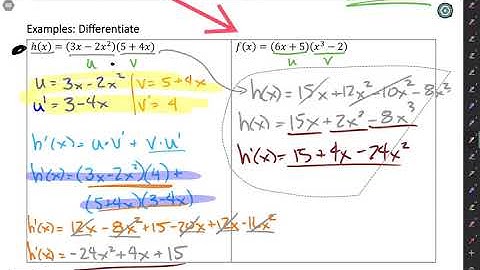 Examples: Differentiate
h(x) = (3x − 2x²)(5 + 4x)
u · v
u = 3x - 2x² | v = 5 + 4x
u' = 3 - 4x | v' = 4
h'(x) = u·v' + v·u'
h'(x) = (3x - 2x²)(4) +
(5 + 4x)(3 - 4x)
h'(x) = 12x - 8x² + 15 - 20x + 12x - 16x²
h'(x) = -24x² + 4x + 15
f(x) = (6x + 5)(x³ − 2)
u v
h(x) = 15x + 12x² - 10x² - 8x³
h(x) = 15x + 2x² - 8x³
h'(x) = 15 + 4x - 24x²